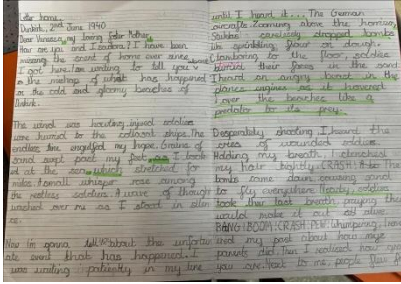 Letter home.
Dunkirk, 2nd June 1940
Dear Vanessa, my loving foster Mother,
How are you and Isadora? I have been
missing the scent of home ever since
I got here. I am writing to tell you
in the meaning of what has happened
on the cold and gloomy beaches of
Dunkirk.
The wind was howling injured soldiers
were hurried to the colossal ships. The
endless line engulfed my hope. Grains of
sand swept past my feet as I look
ed at the sea which stretched for
miles. A small whisper rose among
the restless soldiers. A wave of thought
washed over me as I stood in silen
ce.
Now I'm gonna tell you about the unfortun
ate event that has happened. I
was waiting patiently in my line
until I heard it... The German
aircrafts. Zooming above the horizon,
Stukas carelessly dropped bombs
like sprinkling flour on dough.
their faces in the sand
I heard an angry burst in the
planes engines as it hovered
over the beaches like a
predator to its prey.
Desperately shooting I heard the
cries of wounded soldiers.
Holding my breath, I clenched
my hair tightly. CRASH!
bombs came down causing sand
to fly everywhere. Nearby, soldiers
took their last breath praying they
would make it out alive.
BANG! BOOM! CRASH! PEW! Whimpering, I
my past about how my
parents died. Then I realised how
you are. Next to me, people